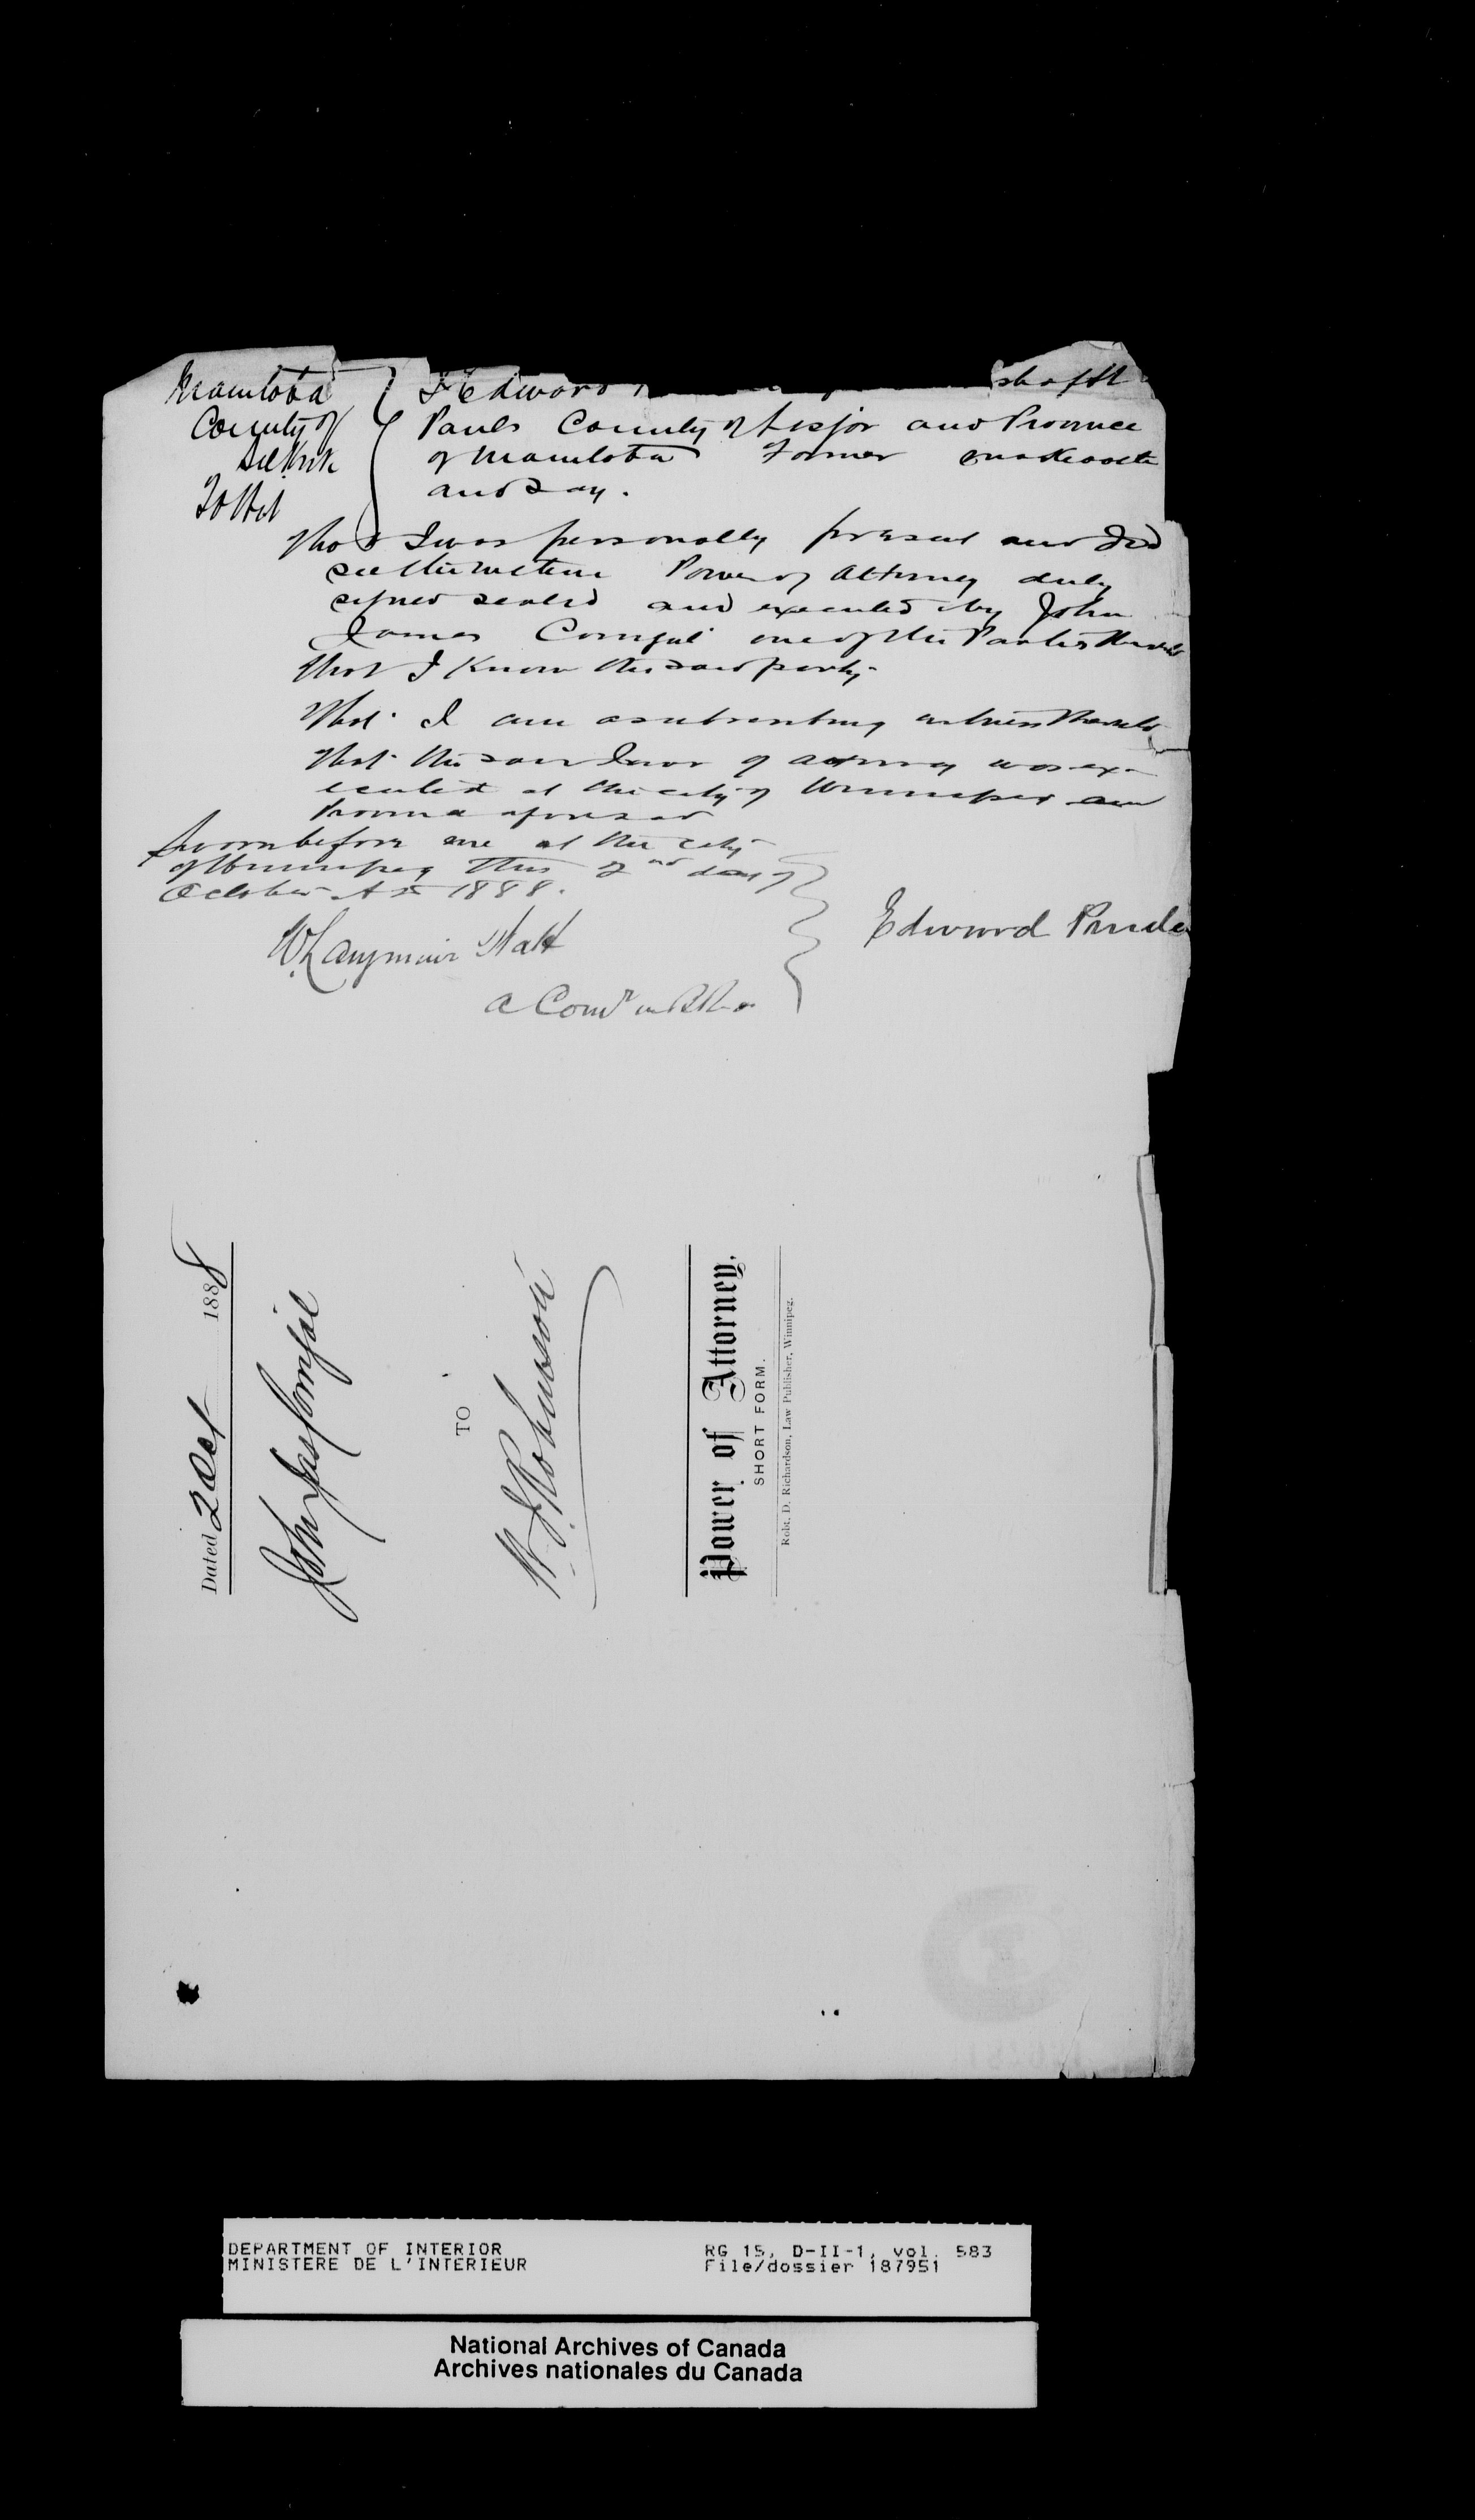 Manitoba
County of
Selkirk
To Wit
I Edward
Pauls County of Lisgar and Province
of Manitoba Farmer make oath
and say.
That I was personally present and did
see the within Power of Attorney duly
signed sealed and executed by John
James Corrigal one of the Parties thereto
that I know the said party.
That I am a subscribing witness thereto
That the said Power of Attorney was ex-
ecuted at the city of Winnipeg and
Province aforesaid
Sworn before me at the city
of Winnipeg this 2nd day of
October AD 1888.
Edward Prude
A Comr in BR
Dated 2 Oct 1888
John Jas Corrigal
TO
W. J. Robinson
Power of Attorney.
SHORT FORM.
Robt. D. Richardson, Law Publisher, Winnipeg.
DEPARTMENT OF INTERIOR
MINISTERE DE L'INTERIEUR
RG 15, D-II-1, vol. 583
File/dossier 187951
National Archives of Canada
Archives nationales du Canada